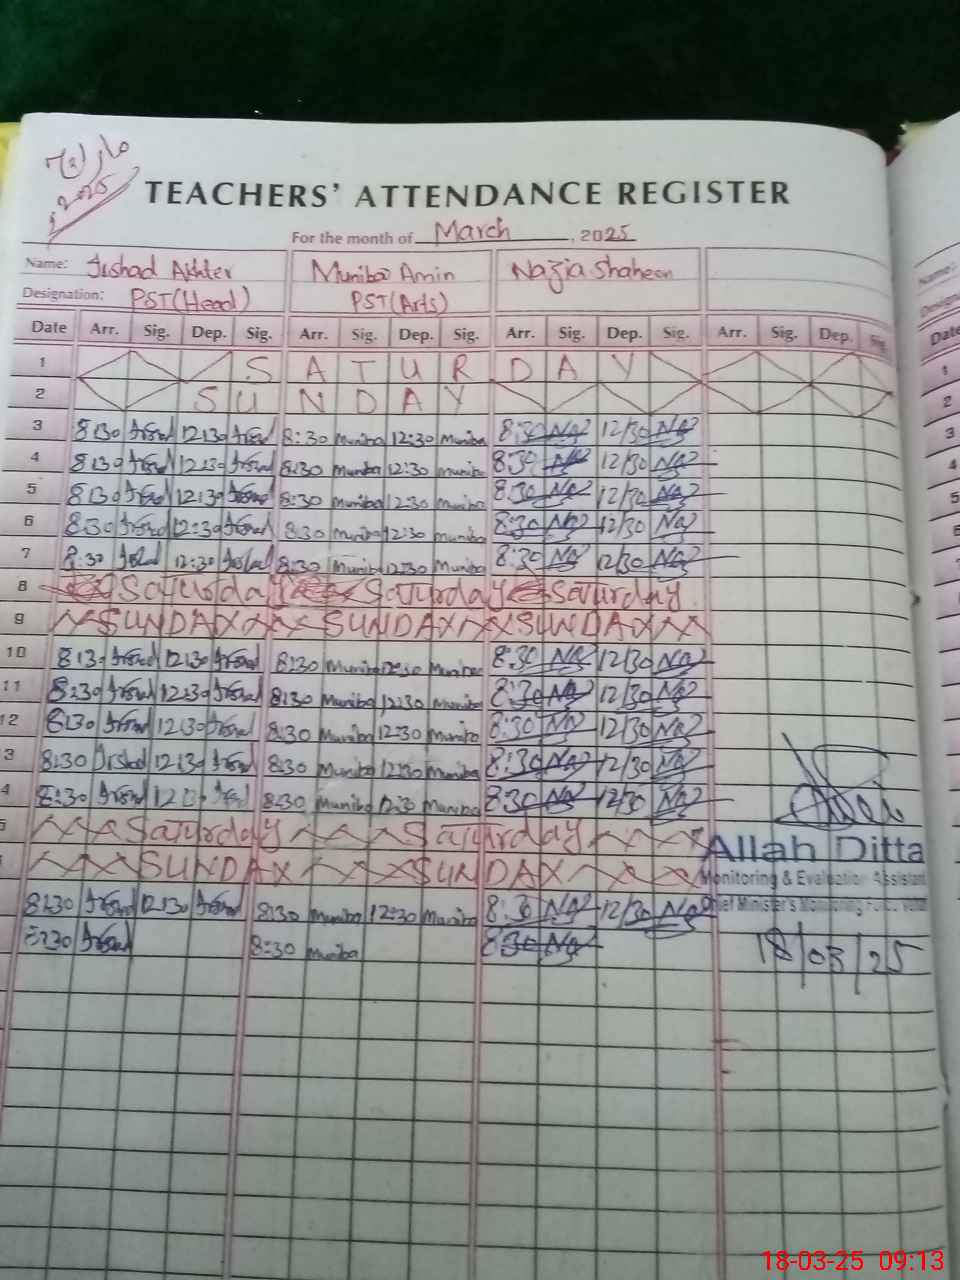 مارچ
2025
TEACHERS' ATTENDANCE REGISTER
For the month of March, 2025
Name: Irshad Akhter Muniba Amin Nazia Shaheen
Designation: PST(Head) PST(Arts)
Date Arr. Sig. Dep. Sig. Arr. Sig. Dep. Sig. Arr. Sig. Dep. Sig. Arr. Sig. Dep. Sig.
1 SATURDAY
2 SUNDAY
3 8:30 Irshad 12:30 Irshad 8:30 Muniba 12:30 Muniba 8:30 Naz 12/30 Naz
4 8:30 Irshad 12:30 Irshad 8:30 Muniba 12:30 Muniba 8:30 Naz 12/30 Naz
5 8:30 Irshad 12:30 Irshad 8:30 Muniba 12:30 Muniba 8:30 Naz 12/30 Naz
6 8:30 Irshad 12:30 Irshad 8:30 Muniba 12:30 Muniba 8:30 Naz 12/30 Naz
7 8:30 Irshad 12:30 Irshad 8:30 Muniba 12:30 Muniba 8:30 Naz 12/30 Naz
8 Saturday Saturday Saturday
9 SUNDAY SUNDAY SUNDAY
10 8:30 Irshad 12:30 Irshad 8:30 Muniba 12:30 Muniba 8:30 Naz 12/30 Naz
11 8:30 Irshad 12:30 Irshad 8:30 Muniba 12:30 Muniba 8:30 Naz 12/30 Naz
12 8:30 Irshad 12:30 Irshad 8:30 Muniba 12:30 Muniba 8:30 Naz 12/30 Naz
3 8:30 Irshad 12:30 Irshad 8:30 Muniba 12:30 Muniba 8:30 Naz 12/30 Naz
4 8:30 Irshad 12:30 Irshad 8:30 Muniba 12:30 Muniba 8:30 Naz 12/30 Naz
5 Saturday Saturday
SUNDAY SUNDAY
Allah Ditta
Monitoring & Evaluation Assistant
Chief Minister's Monitoring Force
8:30 Irshad 12:30 Irshad 8:30 Muniba 12:30 Muniba 8:30 Naz 12/30 Naz
8:30 Irshad 8:30 Muniba 8:30 Naz
18/03/25
Name:
Date
1
2
3
4
5
6
7
18-03-25 09:13